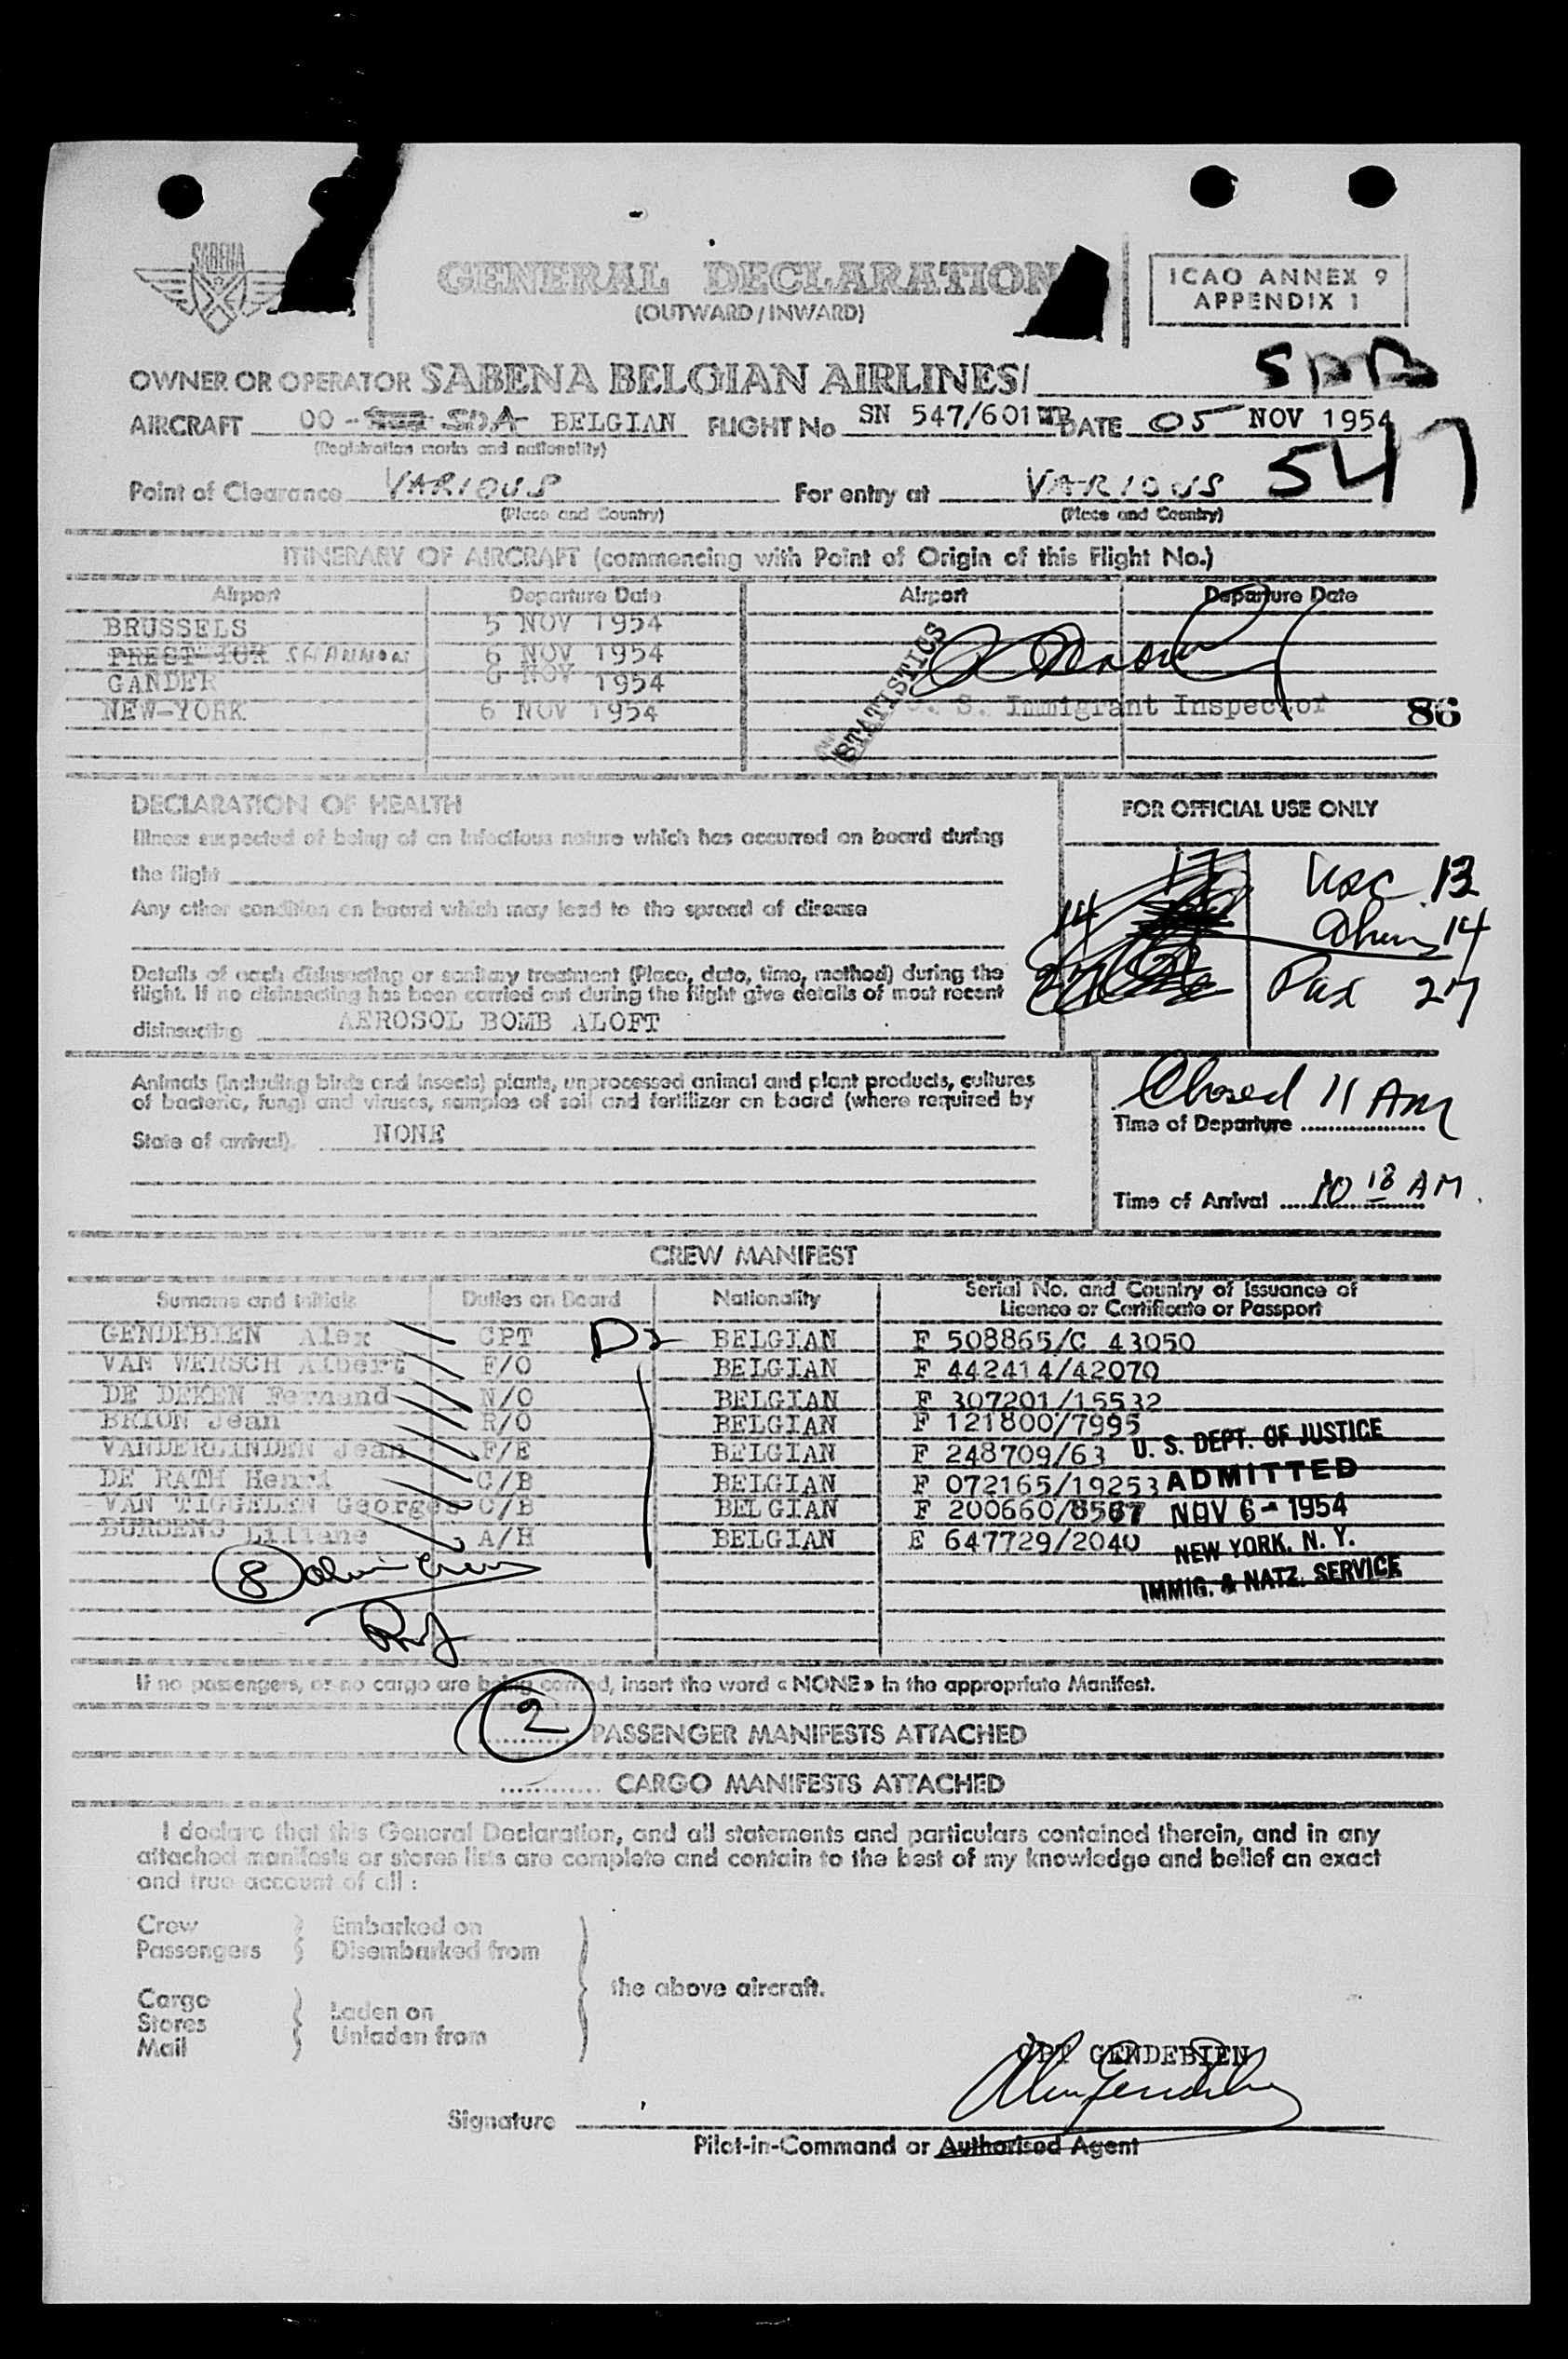 SABENA
GENERAL DECLARATION
(OUTWARD / INWARD)
ICAO ANNEX 9
APPENDIX 1
OWNER OR OPERATOR SABENA BELGIAN AIRLINES/
AIRCRAFT OO- SDA BELGIAN FLIGHT No SN 547/601 DATE 05 NOV 1954
(Registration marks and nationality)
547
Point of Clearance VARIOUS For entry at VARIOUS
(Place and Country) (Place and Country)
ITINERARY OF AIRCRAFT (commencing with Point of Origin of this Flight No.)
Airport Departure Date Airport Departure Date
BRUSSELS 5 NOV 1954
SHANNON 6 NOV 1954
GANDER 6 NOV 1954
NEW-YORK 6 NOV 1954
STATISTICS
U. S. Immigrant Inspector
86
DECLARATION OF HEALTH
Illness suspected of being of an infectious nature which has occurred on board during
the flight
Any other condition on board which may lead to the spread of disease
Details of each disinsecting or sanitary treatment (Place, date, time, method) during the
flight. If no disinsecting has been carried out during the flight give details of most recent
disinsecting AEROSOL BOMB ALOFT
FOR OFFICIAL USE ONLY
17
14
USC 13
Aliens 14
Pax 27
Animals (including birds and insects) plants, unprocessed animal and plant products, cultures
of bacteria, fungi and viruses, samples of soil and fertilizer on board (where required by
State of arrival). NONE
Closed 11 AM
Time of Departure
Time of Arrival 10 18 AM.
CREW MANIFEST
Surname and Initials Duties on Board Nationality Serial No. and Country of Issuance of
Licence or Certificate or Passport
GENDEBIEN Alex CPT BELGIAN F 508865/C 43050
VAN WERSCH Albert F/O BELGIAN F 442414/42070
DE DEKEN Fernand N/O BELGIAN F 307201/15532
BRION Jean R/O BELGIAN F 121800/7995
VANDERLINDEN Jean F/E BELGIAN F 248709/63
DE RATH Henri C/B BELGIAN F 072165/19253
VAN TIGGELEN Georges C/B BELGIAN F 200660/8567
BURSENS Liliane A/H BELGIAN E 647729/2040
U. S. DEPT. OF JUSTICE
ADMITTED
NOV 6 - 1954
NEW YORK, N. Y.
IMMIG. & NATZ. SERVICE
8 alien crew
If no passengers, or no cargo are being carried, insert the word « NONE » in the appropriate Manifest.
2 PASSENGER MANIFESTS ATTACHED
............ CARGO MANIFESTS ATTACHED
I declare that this General Declaration, and all statements and particulars contained therein, and in any
attached manifests or stores lists are complete and contain to the best of my knowledge and belief an exact
and true account of all :
Crew Embarked on
Passengers Disembarked from
the above aircraft.
Cargo
Stores Laden on
Mail Unladen from
CPT GENDEBIEN
Signature
Pilot-in-Command or Authorised Agent